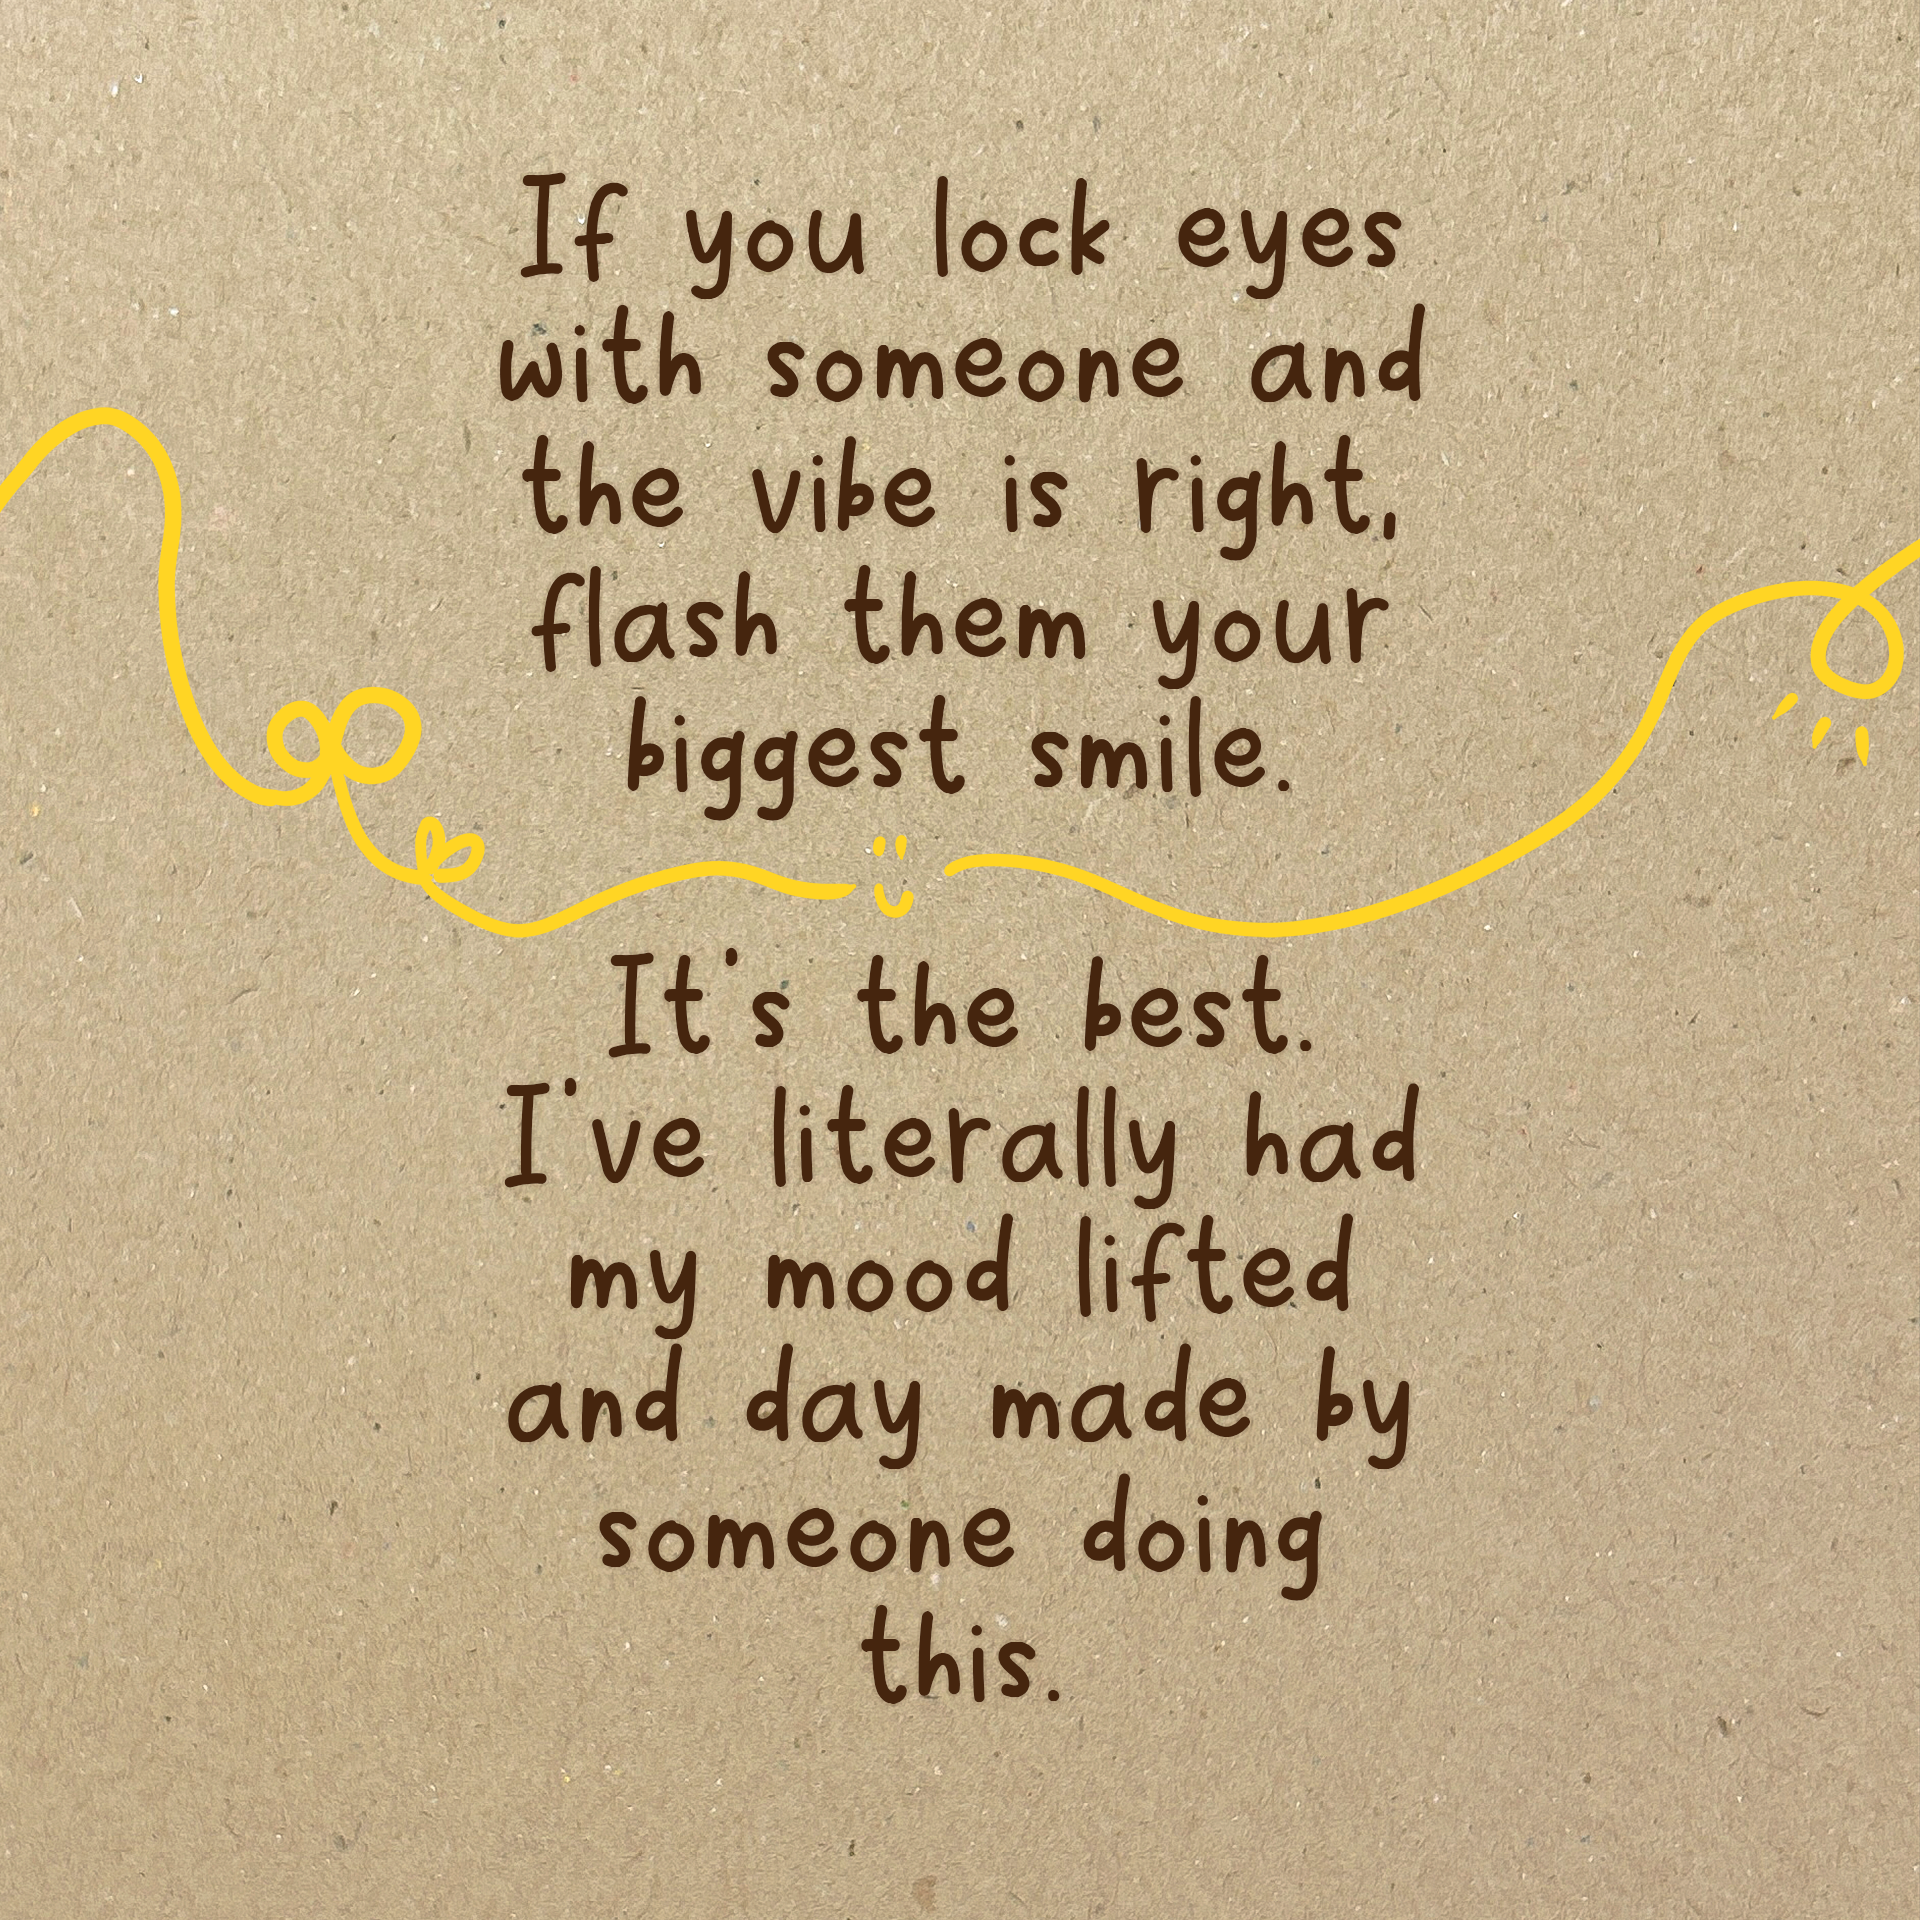 If you lock eyes
with someone and
the vibe is right,
flash them your
biggest smile.
It's the best.
I've literally had
my mood lifted
and day made by
someone doing
this.